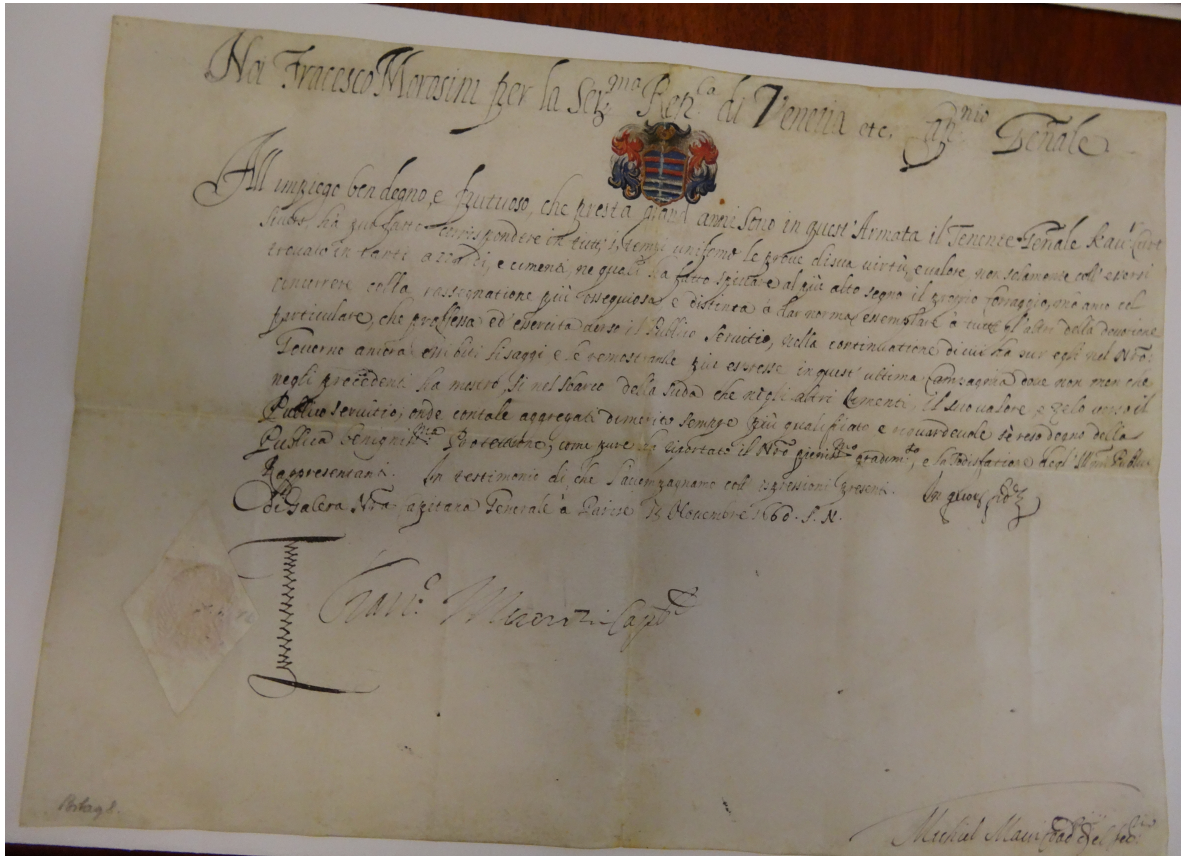 Noi Fracesco Morosini per la Ser.ma Rep.ca di Venetia etc. Cap.nio G͠nale
All impiego ben degno, e frutuoso, che presta grand anni sono in quest'Armata il Tenente G͠nale Kau.r
ha corrispondere in tutti i tempi uniforme le proue di sua virtù, e ualore, non solamente coll' esersi
trouato in tanti e cimenti, ne quali ha fatto spiccare al più alto segno il proprio coraggio, mà anco col
concorrere colla rassegnatione più ossequiosa e distinta à dar norma esemplare à tutti gl'altri della deuotione
particulare, che professa ed' esercita uerso il Publico Seruitio, nella continuatione di cui ha pur egli nel Nr͠o
Gouerno ancora esibiti si saggi e le remostranze più espresse in quest' ultima Campagna doue non men che
negli precedenti ha mostro, si nel sbarco della Suda che negli altri Cimenti il suo ualore e zelo uerso il
Publico seruitio; onde con tale aggregati di merito sempre più qualificato e riguardeuole s'è reso degno della
Publica benignis.ma Protettione, come pure hà riportato il Nr͠o pienis.mo gradim.to, e la sodisfatione degl' Ill.mi Publici
Rappresentanti. In testimonio di che l'accompagnamo coll' espressioni presenti. In quor.
Di Galera Nr͠a Capitana Generale à Nouembre 1660. S. N.
Fran.co Morosini Cap.
Michiel